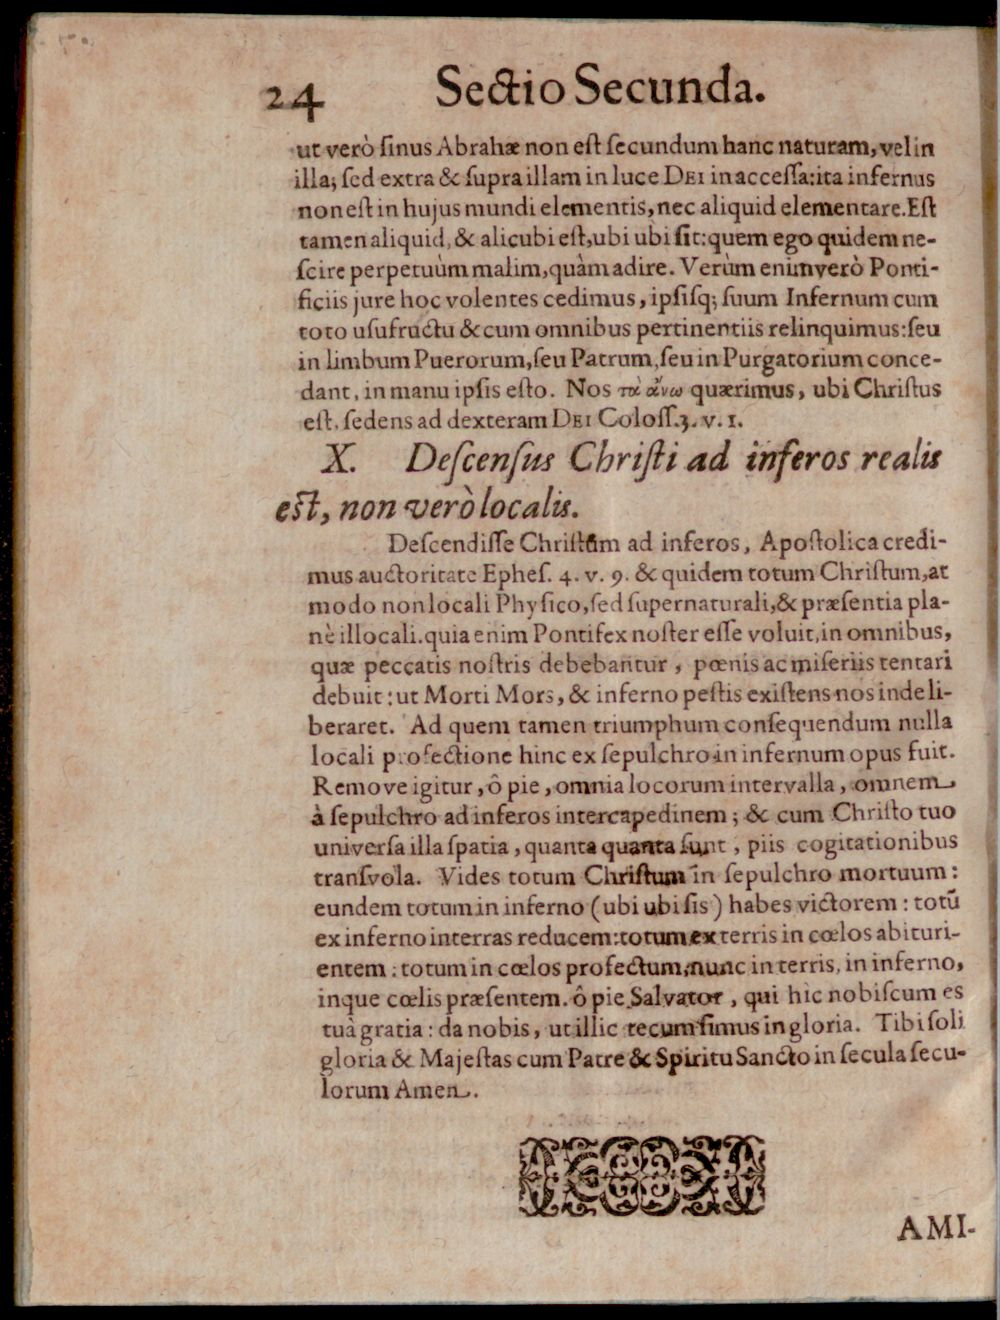 24 Sectio Secunda.
ut verò ſinus Abrahæ non eſt ſecundum hanc naturam, vel in
illa; ſed extra & ſupra illam in luce DEI inacceſſa: ita infernus
non eſt in hujus mundi elementis, nec aliquid elementare. Eſt
tamen aliquid, & alicubi eſt, ubi ubi ſit: quem ego quidem ne-
ſcire perpetuùm malim, quàm adire. Verùm enimverò Ponti-
ficiis jure hoc volentes cedimus, ipſiſq; ſuum Infernum cum
toto uſufructu & cum omnibus pertinentiis relinquimus: ſeu
in limbum Puerorum, ſeu Patrum, ſeu in Purgatorium conce-
dant, in manu ipſis eſto. Nos τὰ ἄνω quærimus, ubi Chriſtus
eſt, ſedens ad dexteram DEI Coloſſ. 3. v. 1.
X. Deſcenſus Chriſti ad inferos realis
eſt, non verò localis.
Deſcendiſſe Chriſtum ad inferos, Apoſtolica credi-
mus auctoritate Epheſ. 4. v. 9. & quidem totum Chriſtum, at
modo non locali Phyſico, ſed ſupernaturali, & præſentia pla-
nè illocali. quia enim Pontifex noſter eſſe voluit, in omnibus,
quæ peccatis noſtris debebantur, pœnis ac miſeriis tentari
debuit: ut Morti Mors, & inferno peſtis exiſtens nos inde li-
beraret. Ad quem tamen triumphum conſequendum nulla
locali profectione hinc ex ſepulchro in infernum opus fuit.
Remove igitur, ô pie, omnia locorum intervalla, omnem
à ſepulchro ad inferos intercapedinem; & cum Chriſto tuo
univerſa illa ſpatia, quanta quanta ſunt, piis cogitationibus
tranſvola. Vides totum Chriſtum in ſepulchro mortuum:
eundem totum in inferno (ubi ubi ſis) habes victorem: totū
ex inferno in terras reducem: totum ex terris in cœlos abituri-
entem: totum in cœlos profectum, nunc in terris, in inferno,
inque cœlis præſentem. ô pie Salvator, qui hic nobiſcum es
tuà gratia: da nobis, ut illic tecum ſimus in gloria. Tibi ſoli
gloria & Majeſtas cum Patre & Spiritu Sancto in ſecula ſecu-
lorum Amen.
AMI-